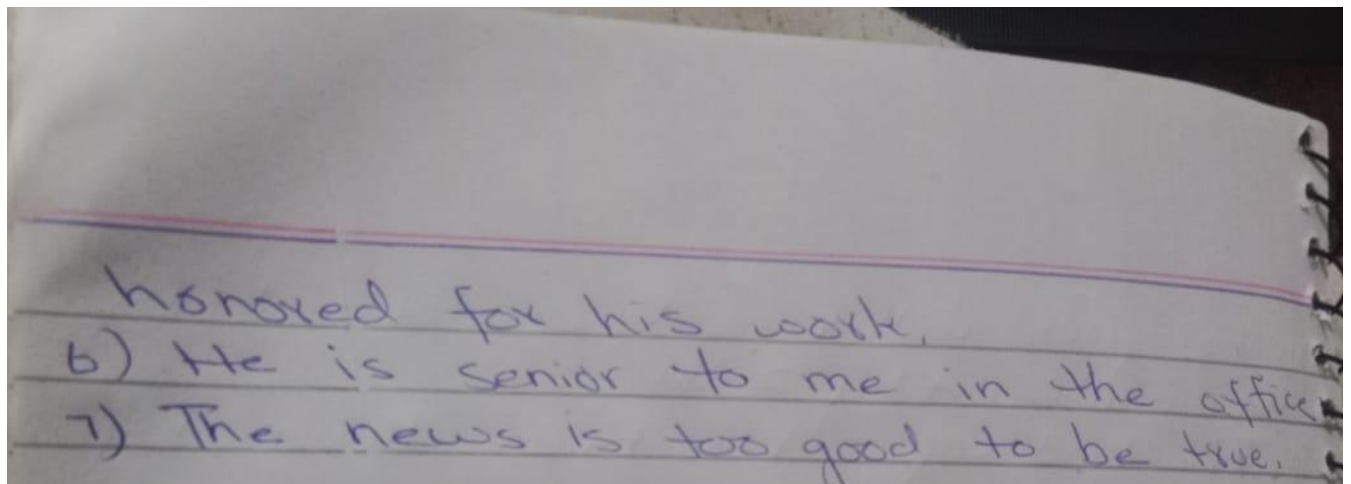 honored for his work.
6) He is senior to me in the office
7) The news is too good to be true.